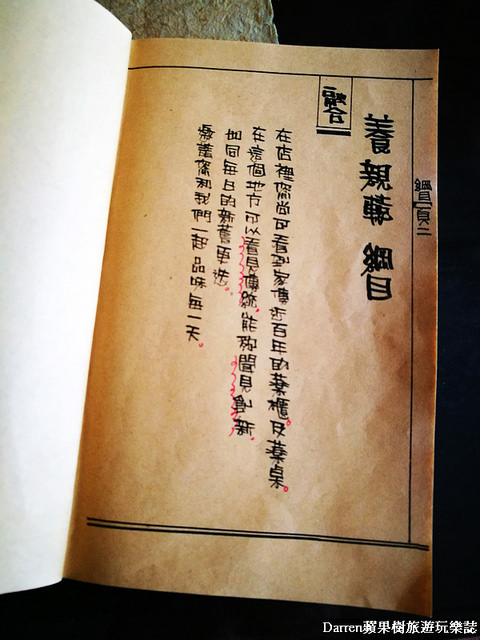 綱目 頁二
養親 綱目
融合
在店裡您尚可看到家傳近百年的藥櫃。及藥桌。
在這個地方可以看見傳統。能夠聞見創新。
如同每日的新舊更迭。
邀請您和我們一起品味每一天。
Darren蘋果樹旅遊玩樂誌